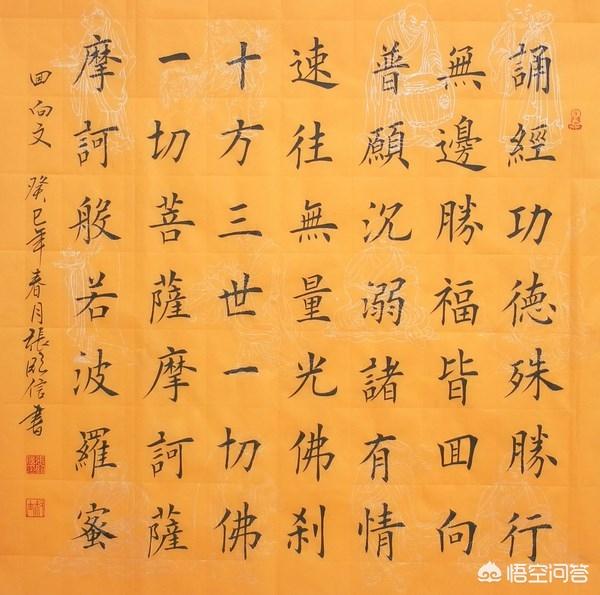 誦經功德殊勝行
無邊勝福皆回向
普願沉溺諸有情
速往無量光佛刹
十方三世一切佛
一切菩薩摩訶薩
摩訶般若波羅蜜
回向文 癸巳年春月張信書
悟空问答